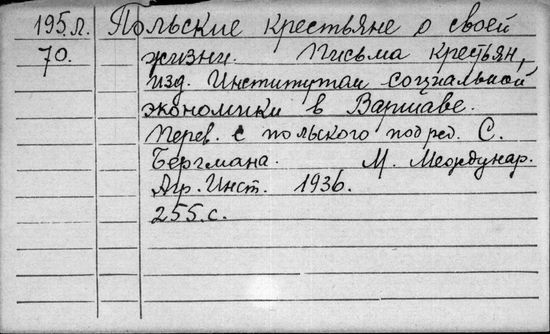 195.Л. Польские крестьяне о своей
70. жизни. Письма крестьян,
изд. Институтом социальной
экономики в Варшаве.
Перев. с польского под ред. С.
Бергмана. М. Междунар.
Агр. Инст. 1936.
255.с.